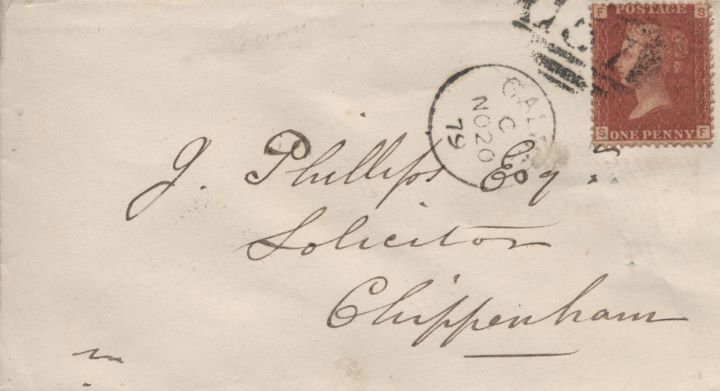 F POSTAGE S
S ONE PENNY F
C
NO 20
79
J. Phillips Esq.
Solicitor
Chippenham